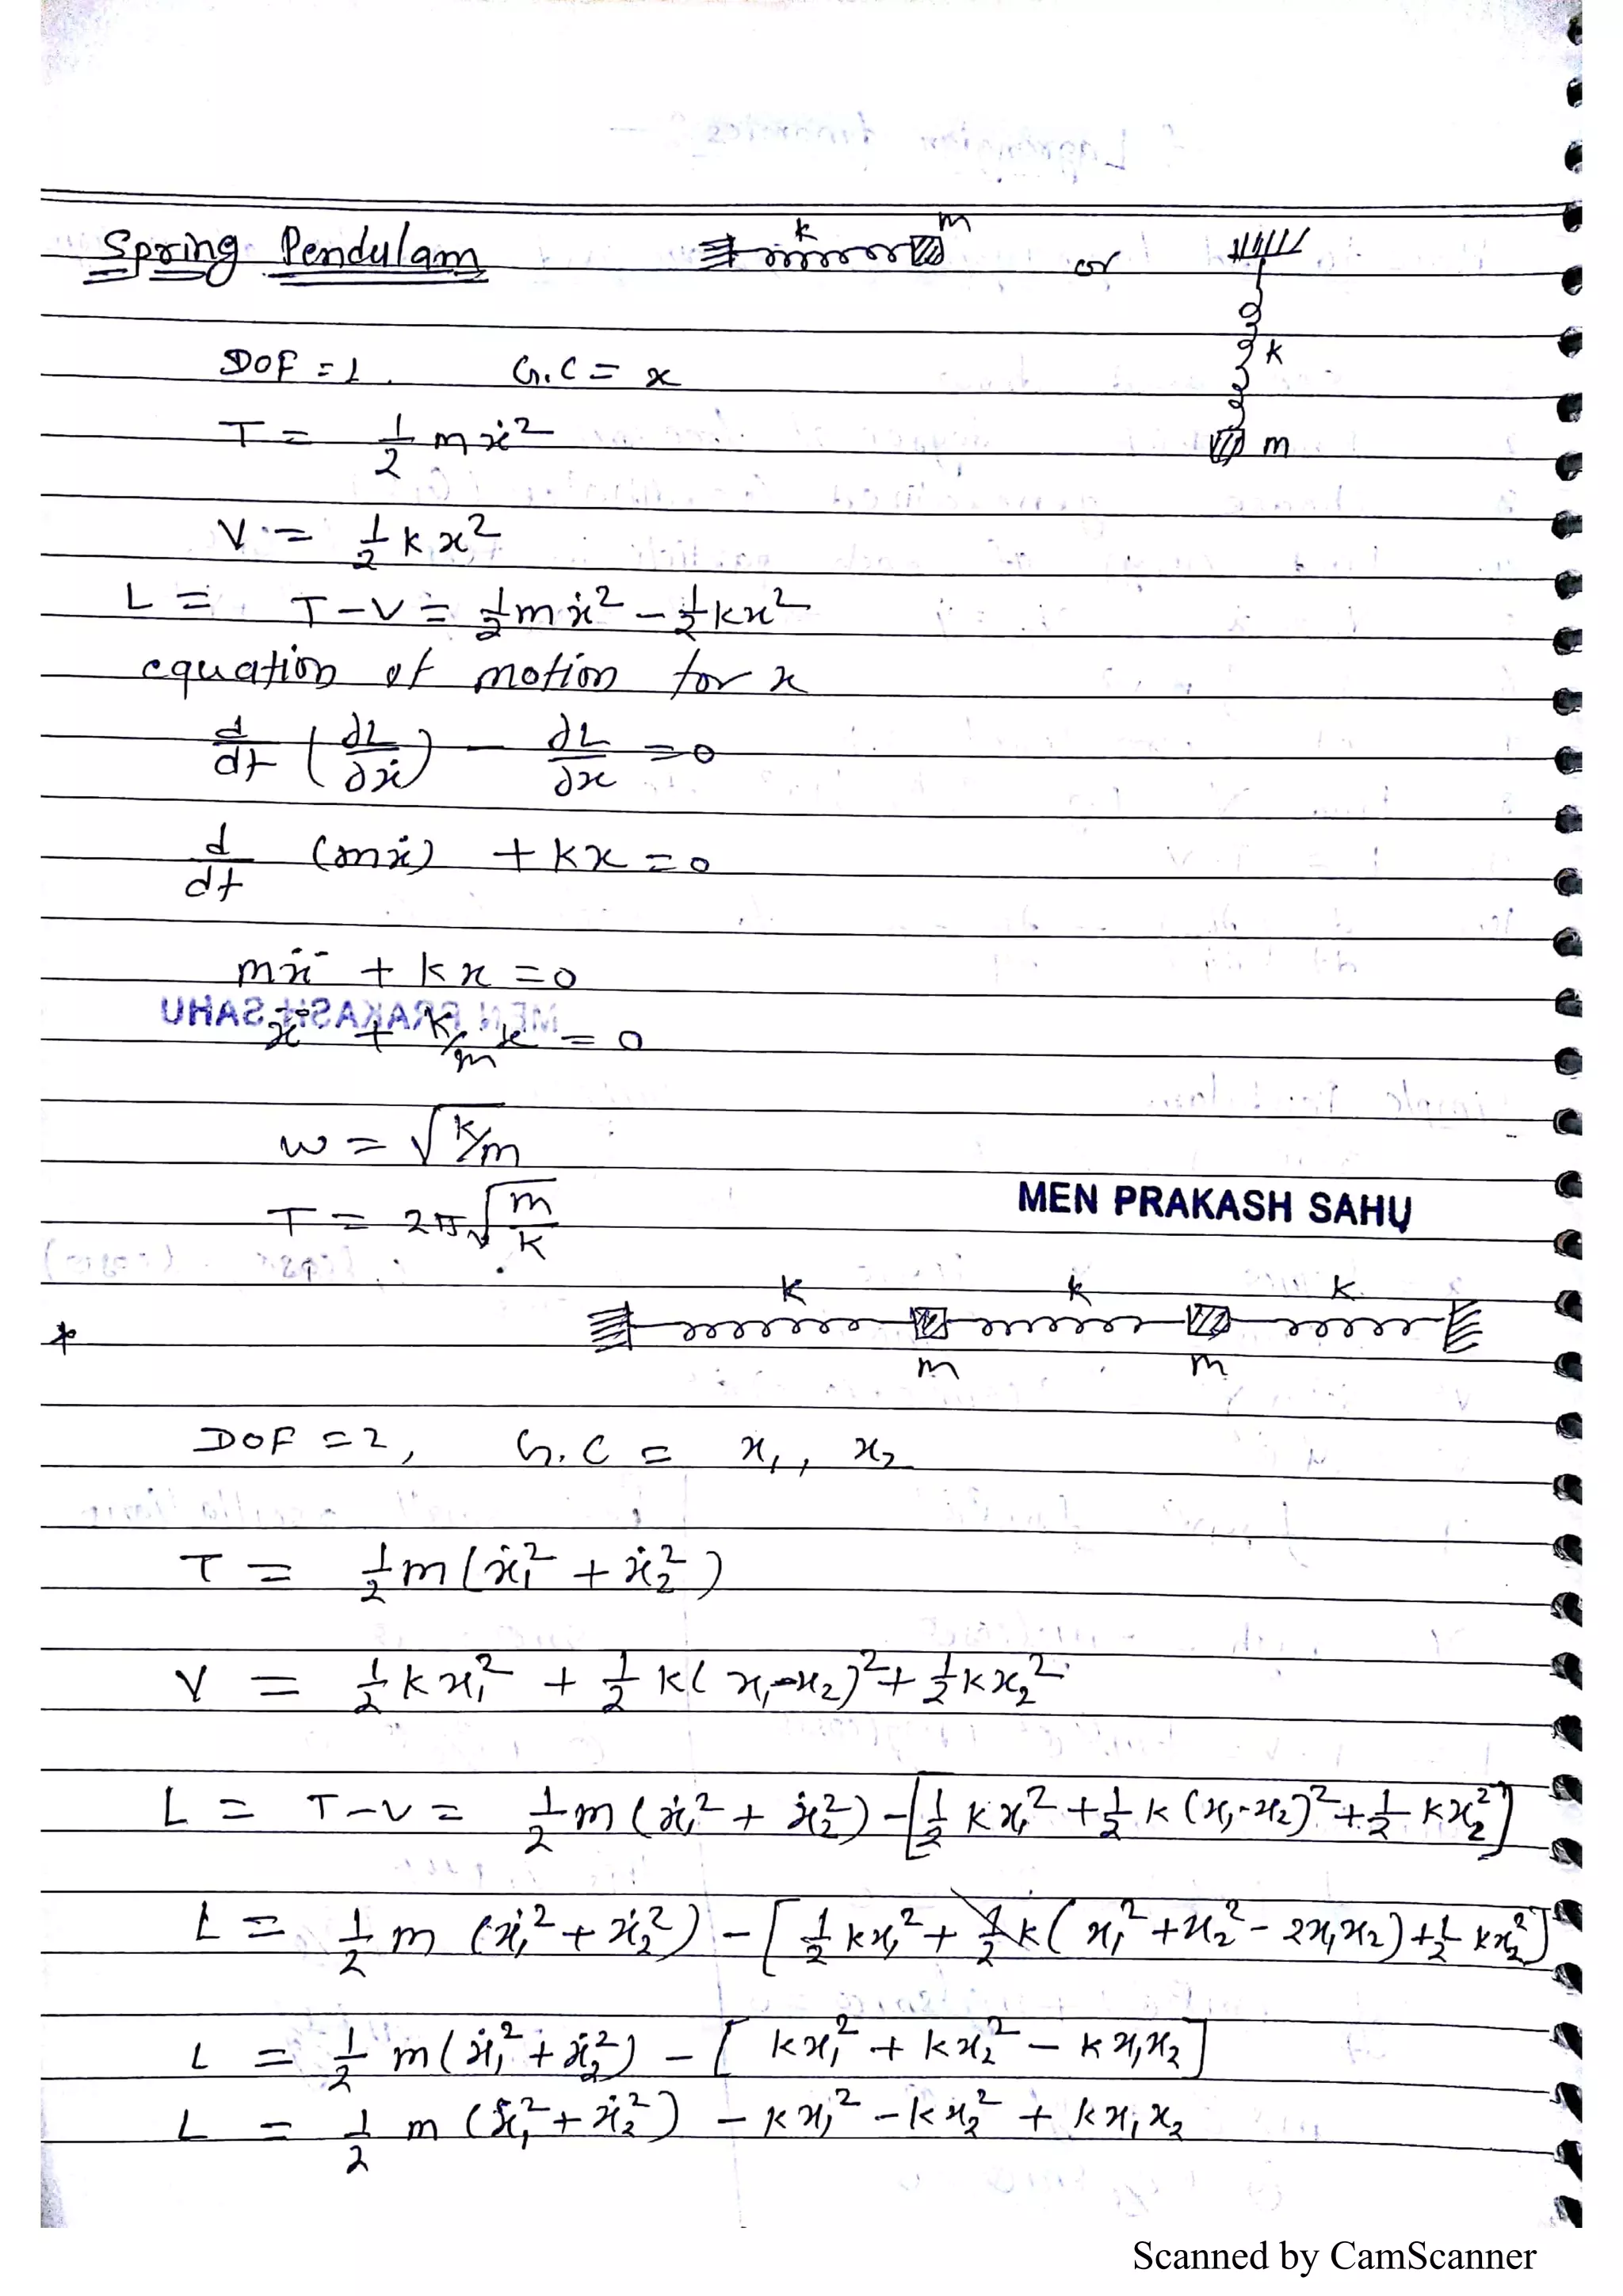 Spring Pendulam k m or
k
m
DOF = 1. G.C = x
T = 1/2 mẋ²
V = 1/2 k x²
L = T - V = 1/2 m ẋ² - 1/2 kx²
equation of motion for x
d/dt (∂L/∂ẋ) - ∂L/∂x = 0
d/dt (mẋ) + kx = 0
mẍ + kx = 0
ẍ + k/m x = 0
w = √k/m
T = 2π√m/k
MEN PRAKASH SAHU
* k k k
m m
DOF = 2, G.C = x₁, x₂
T = 1/2 m (ẋ₁² + ẋ₂²)
V = 1/2 k x₁² + 1/2 k( x₁-x₂)² + 1/2 kx₂²
L = T-V = 1/2 m (ẋ₁² + ẋ₂²) - [1/2 k x₁² + 1/2 k (x₁-x₂)² + 1/2 kx₂²]
L = 1/2 m (ẋ₁² + ẋ₂²) - [1/2 kx₁² + 1/2 k( x₁² + x₂² - 2x₁x₂) + 1/2 kx₂²]
L = 1/2 m (ẋ₁² + ẋ₂²) - [ kx₁² + kx₂² - kx₁x₂]
L = 1/2 m (ẋ₁² + ẋ₂²) - kx₁² - kx₂² + kx₁x₂
Scanned by CamScanner